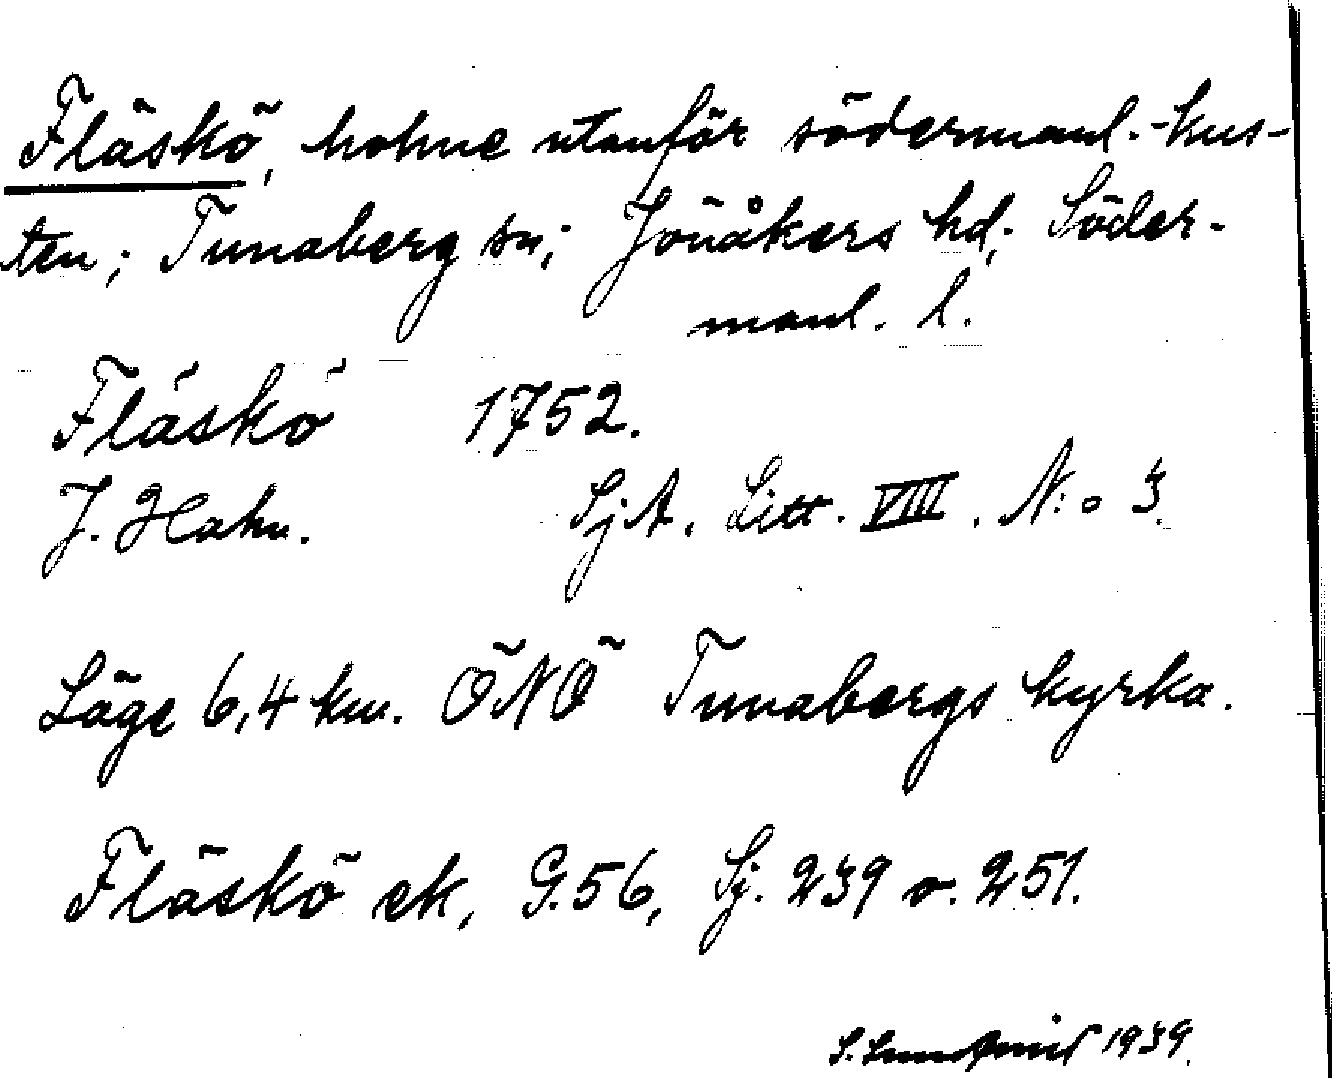 Fläskö, holme utanför södermanl.-kus-
ten; Tunaberg sn; Jönåkers hd; Söder-
manl. l.
Fläskö 1752.
J. Hahn. SjA. Litt. VIII. N:o 3.
Läge 6,4 km. ÖNÖ Tunabergs kyrka.
Fläskö ek, G.56, Sj. 239 o. 251.
S. 1939.